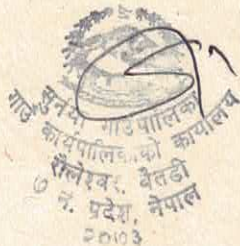 सुनर्या गाउँपालिका
गाउँ कार्यपालिकाको कार्यालय
शैलेश्वर, बैतडी
७ नं. प्रदेश, नेपाल
२०७३